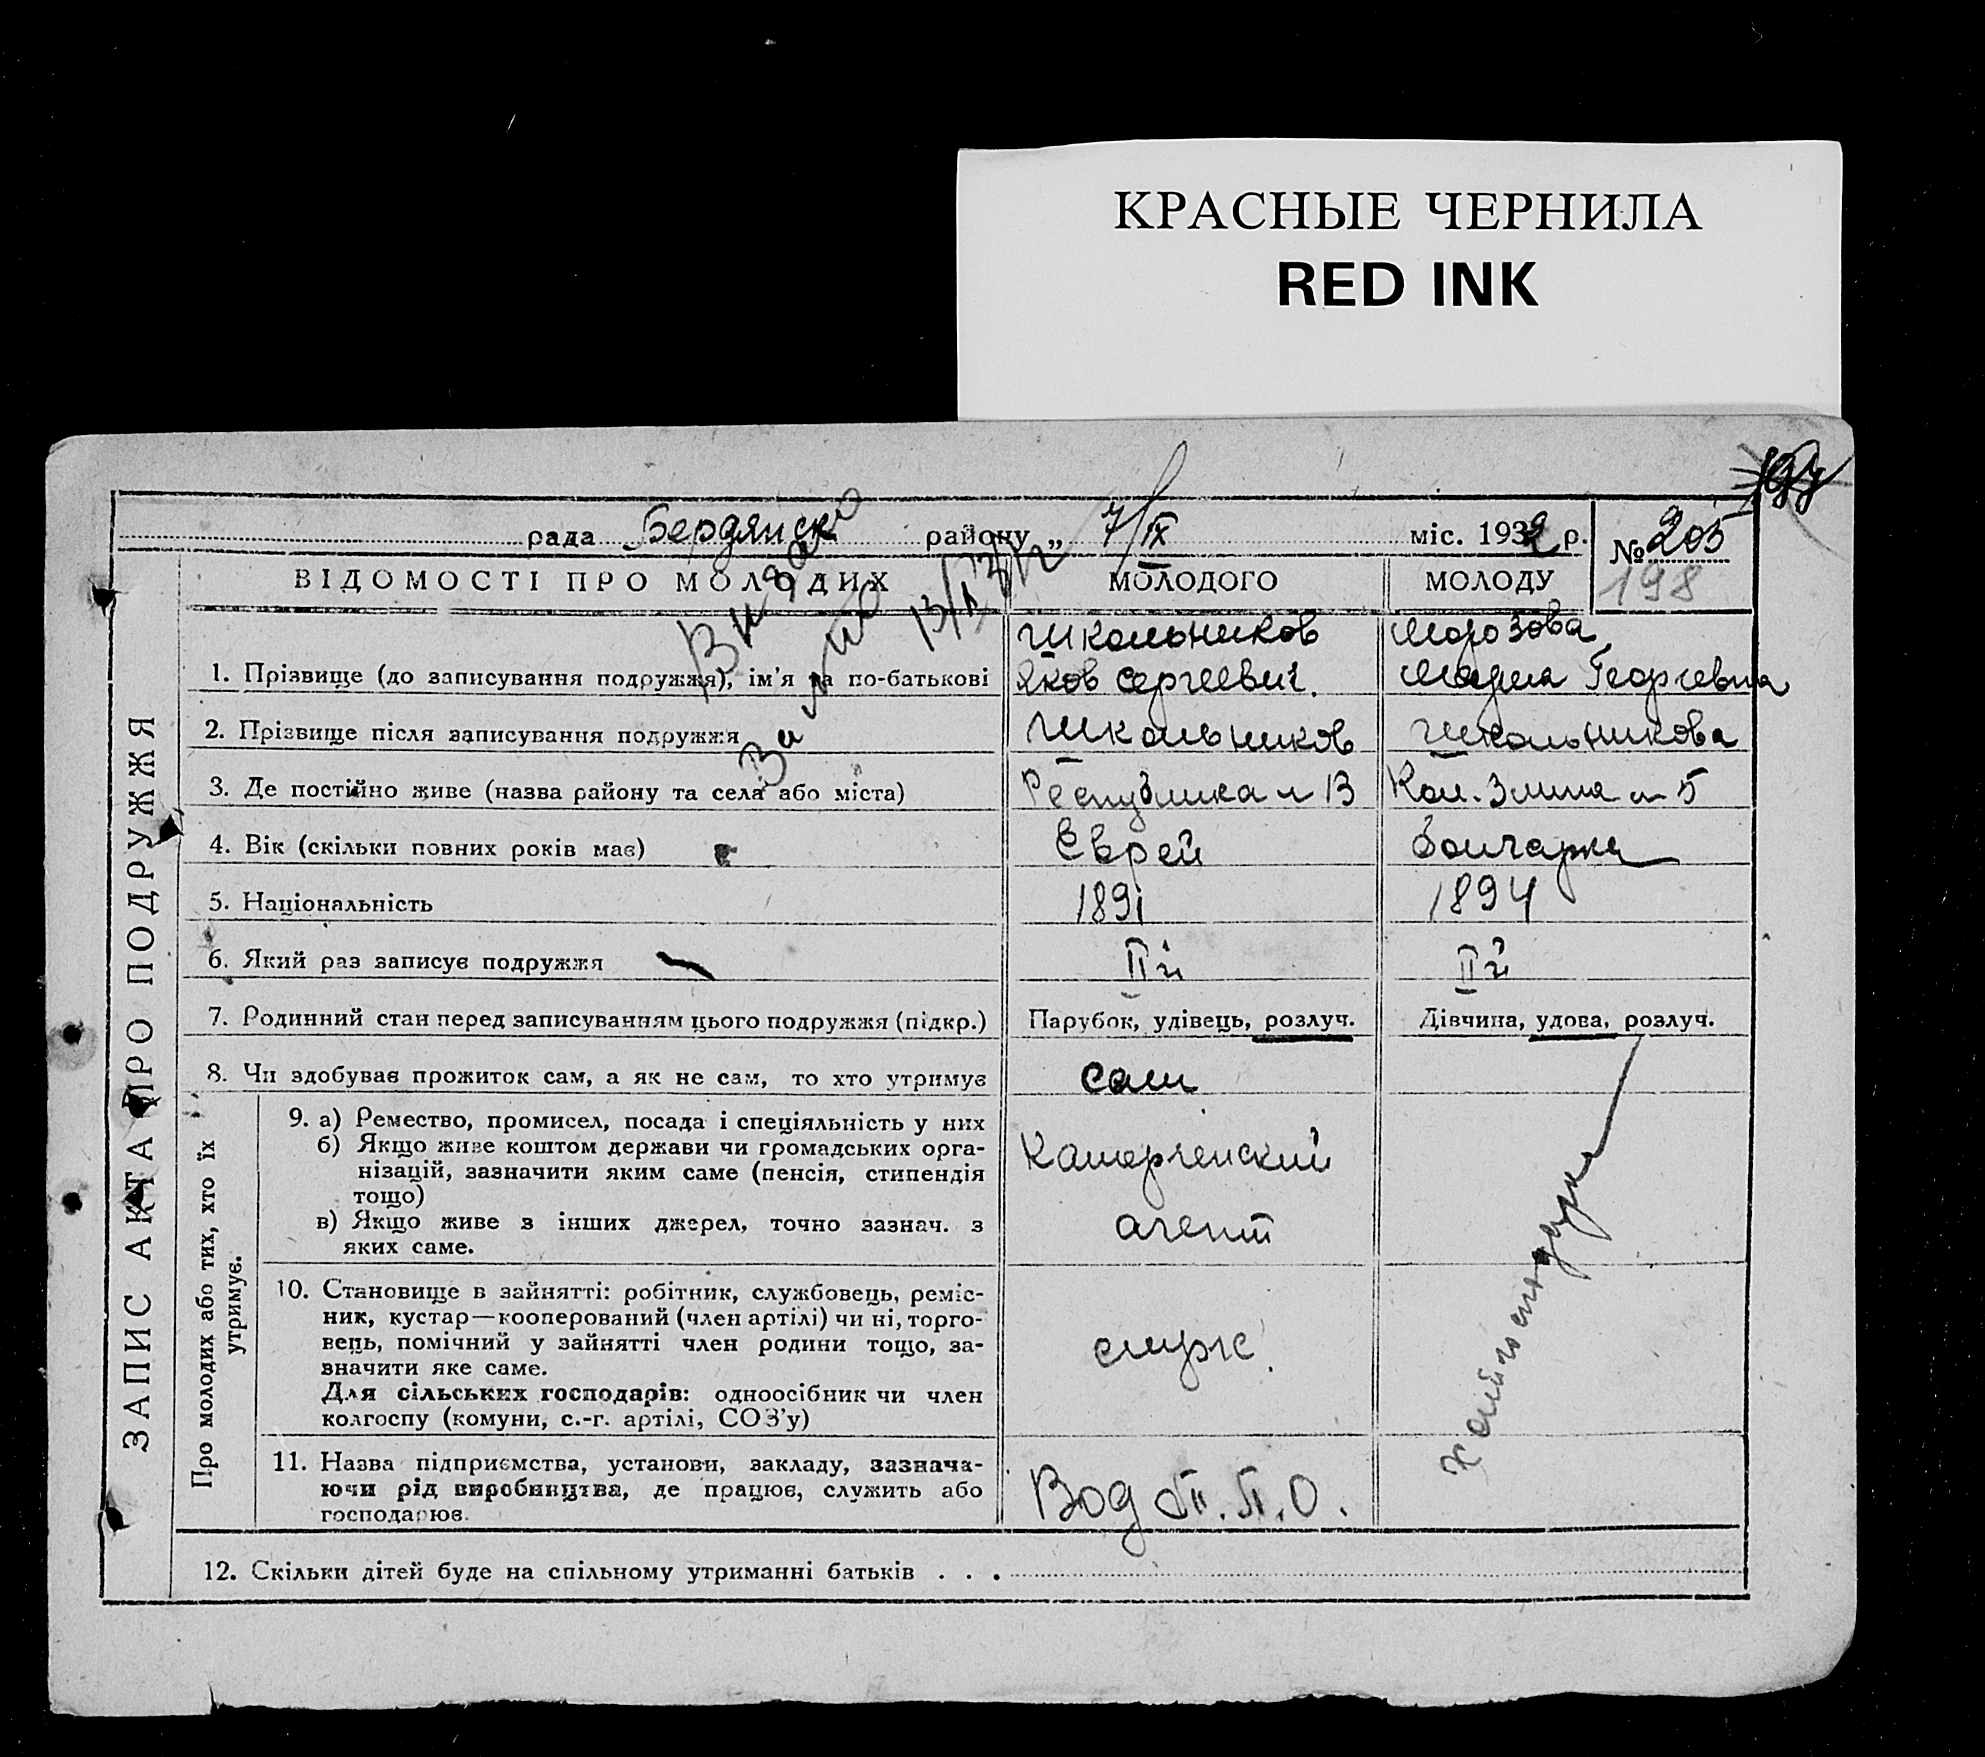 КРАСНЫЕ ЧЕРНИЛА
RED INK
рада Бердянско району „ 7/IX міс. 1932 р. № 205
198
ВІДОМОСТІ ПРО МОЛОДИХ МОЛОДОГО МОЛОДУ
ЗАПИС АКТА ПРО ПОДРУЖЖЯ
Школьников Морозова
1. Прізвище (до записування подружжя), ім'я та по-батькові Яков Сергеевич. Мария Георгевна
2. Прізвище після записування подружжя Школьников Школьникова
3. Де постійно живе (назва району та села або міста) Республика 13 Кол. 5
4. Вік (скільки повних років має) Еврей Болгарка
5. Національність 1891 1894
6. Який раз записує подружжя IIй IIй
7. Родинний стан перед записуванням цього подружжя (підкр.) Парубок, удівець, розлуч. Дівчина, удова, розлуч.
8. Чи здобуває прожиток сам, а як не сам, то хто утримує сам
Про молодих або тих, хто їх утримує.
9. а) Ремество, промисел, посада і спеціяльність у них
б) Якщо живе коштом держави чи громадських орга-
нізацій, зазначити яким саме (пенсія, стипендія
тощо)
в) Якщо живе з інших джерел, точно зазнач. з
яких саме.
агент
10. Становище в зайнятті: робітник, службовець, реміс-
ник, кустар—кооперований (член артілі) чи ні, торго-
вець, помічний у зайнятті член родини тощо, за-
значити яке саме.
Для сільських господарів: одноосібник чи член
колгоспу (комуни, с.-г. артілі, СОЗ'у)
служ.
11. Назва підприємства, установи, закладу, зазнача-
ючи рід виробництва, де працює, служить або
господарює.
Вод П.П.О.
12. Скільки дітей буде на спільному утриманні батьків . . .